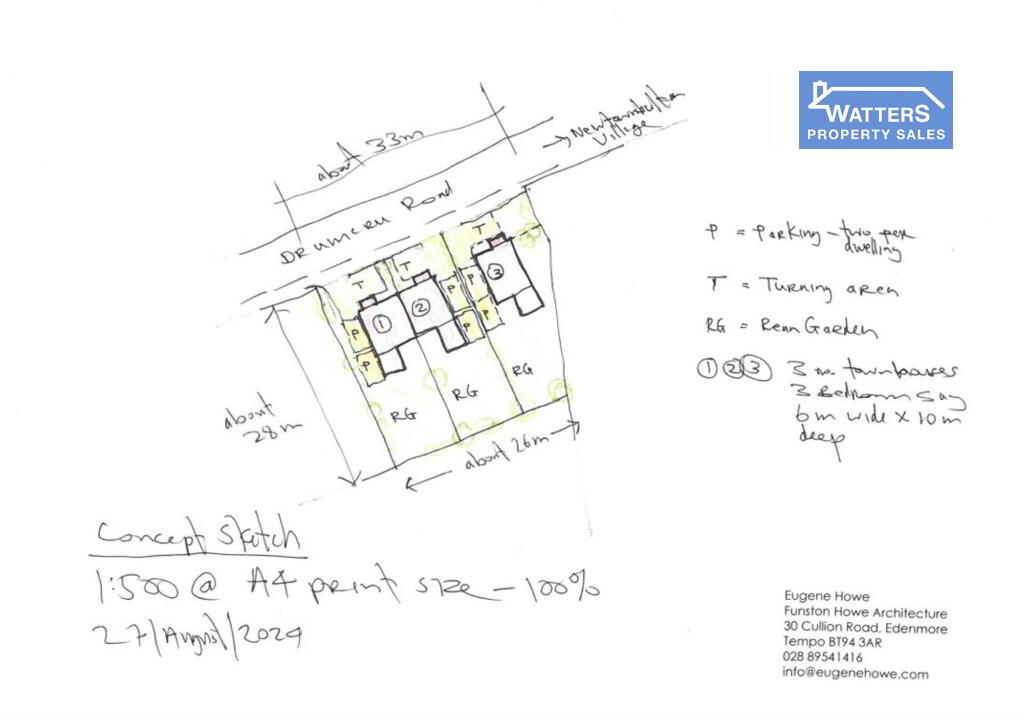 WATTERS
PROPERTY SALES
about 33m
→ Newtownbutler
Village
DRUMCRU Road
P = Parking - two per
dwelling
T = Turning area
RG = Rear Garden
① ② ③ 3 no. townhouses
3 Bedroom say
6m wide x 10m
deep
T
T
T
1
2
3
P
P
P
P
P
P
RG
RG
RG
about
28m
about 26m
Concept Sketch
1:500 @ A4 print size - 100%
27/August/2024
Eugene Howe
Funston Howe Architecture
30 Cullion Road, Edenmore
Tempo BT94 3AR
028 89541416
info@eugenehowe.com